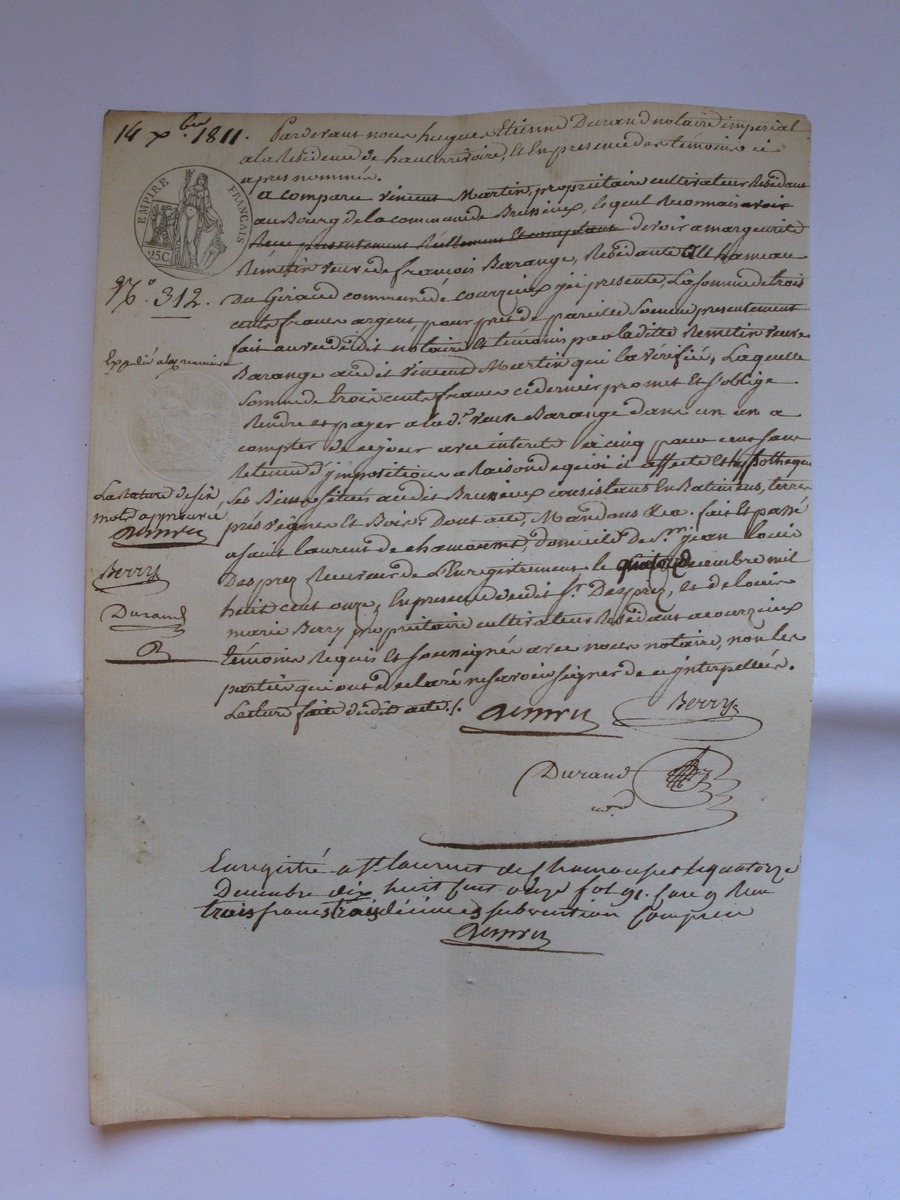 14 xbre 1811.
Pardevant nous hugues Etienne Durand notaire imperial
a la Residence de hauterivoire, Et En presence des témoins ci
apres nommés.
EMPIRE FRANÇAIS
25C
a comparu vincent Martin propriétaire cultivateur Residant
au Bourg de la commune de Brussieux, lequel Reconnais avoir
Recu presentement Réellement Et comptant devoir a margueritte
Rémetin veuve de françois Barange, Residante au hameau
N.º 312.
Du Giraud commune de courzieux ici presente, La somme de trois
cents francs argent, pour pret de pareille Somme presentement
fait au vu dudit notaire et témoins par laditte Remetin veuve
Expedié a la creancière
Barange audit vincent Martin qui la vérifiée, Laquelle
Somme de trois cents francs ce dernier promet Et s'oblige
Rendre et payer a la d.e veuve Barange dans un an a
compter de ce jour avec interet a cinq pour cent sans
Retenue d'impositions a Raison de quoi il affecte Et hypotheque
Ses Biens situés audit Brussieux consistans En Batimens, terres
prés vignes Et Bois. Dont acte, Mandons &a. fait Et passé
La rature de six
mots approuvée
Desprez
Berry
Durand
a saint Laurent de chamousset, domicile de S.r jean louis
Desprez Receveur de L'Enregistrement le quatorze decembre mil
huit cent onze, En presence dudit S.r Desprez, et de louis
marie Berry propriétaire cultivateur Residant a courzieux
témoins Requis Et soussignés avec nous notaire, non les
parties qui ont declaré ne savoir signer de ce interpellées.
Lecture faite dudit acte ./.
Desprez
Berry
Durand
n.re
Enregistré a St laurent de Chamousset le quatorze
Decembre dix huit cent onze fol 91. Case 9 Reçu
trois francs trois décimes subvention Comprise
Desprez